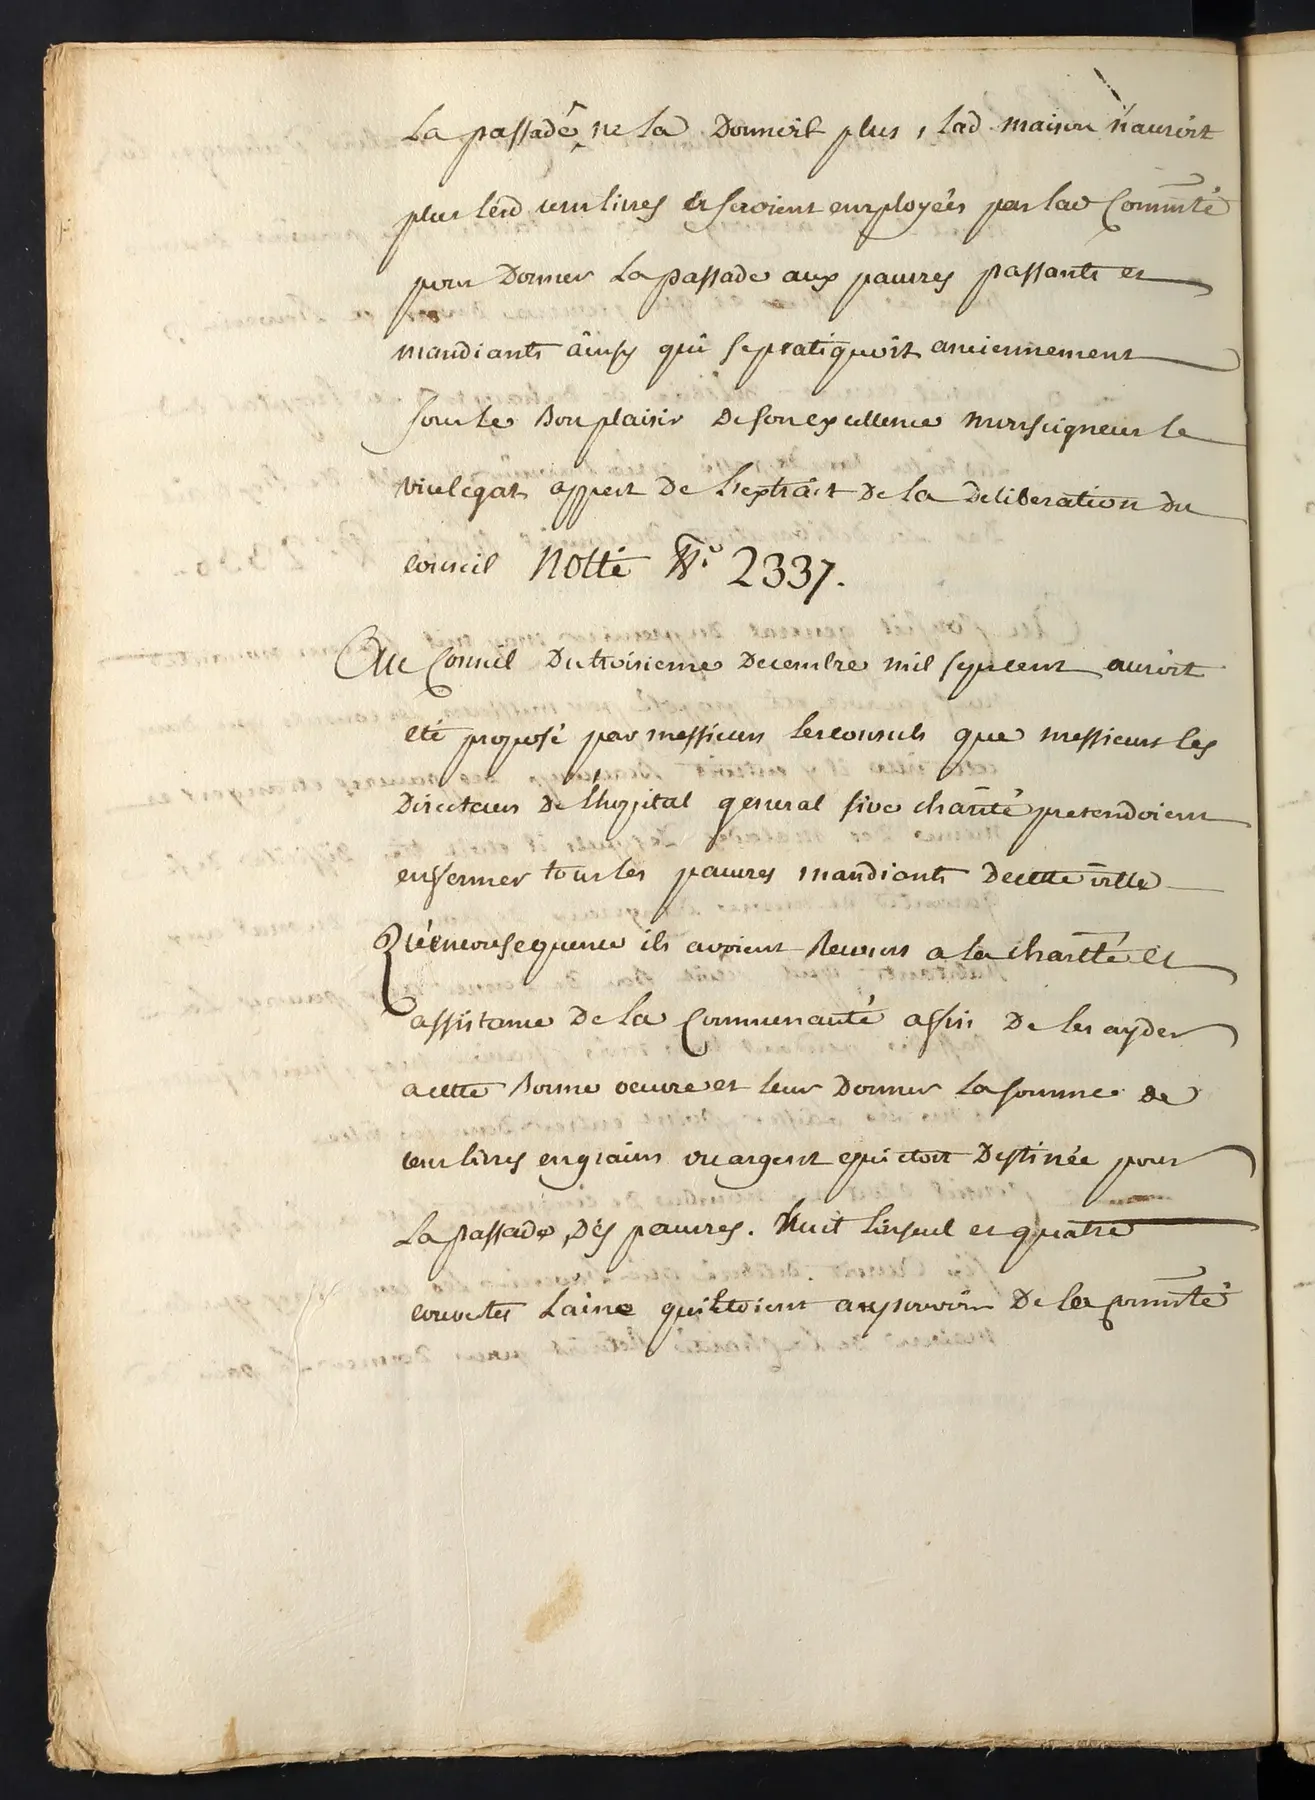 La passade, ne la Donneroit plus, lad. maison n'auroit
plus lesd cens livres et seroient employées par lad Comm̄té
pour Donner La passade aux pauvres passants et
mandiants âinsy qui se pratiquoit anciennement
sous le Bon plaisir De son excellence monseigneur le
vicelegat appert De L'extrait De la Deliberation Du
conseil Notté N.º 2337.
Au Conseil Du troisieme Decembre mil sept cent auroit
eté proposé par messieurs les consuls que messieurs les
Directeurs De L'hopital general sive charité pretendoient
enfermer tous les pauvres mandiants De cette ville
Qu'en consequence ils avoient Recours a la charité et
assistance De la Communauté affin De les ayder
a cette Bonne oeuvre et leur Donner La somme de
cens livres en grains ou argent qui etoit Destinée pour
La passade, Des pauvres. huit Linseul et quatre
couvertes Laine qui etoient au pouvoir De la comm̄té